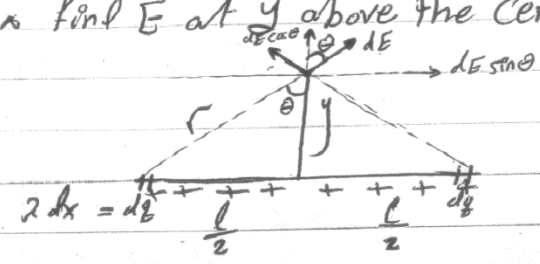 Find E at y above the Cen
dE cosθ θ dE
dE sinθ
θ
r y
+ + + + + + +
λ dx = dq dq
l/2 l/2